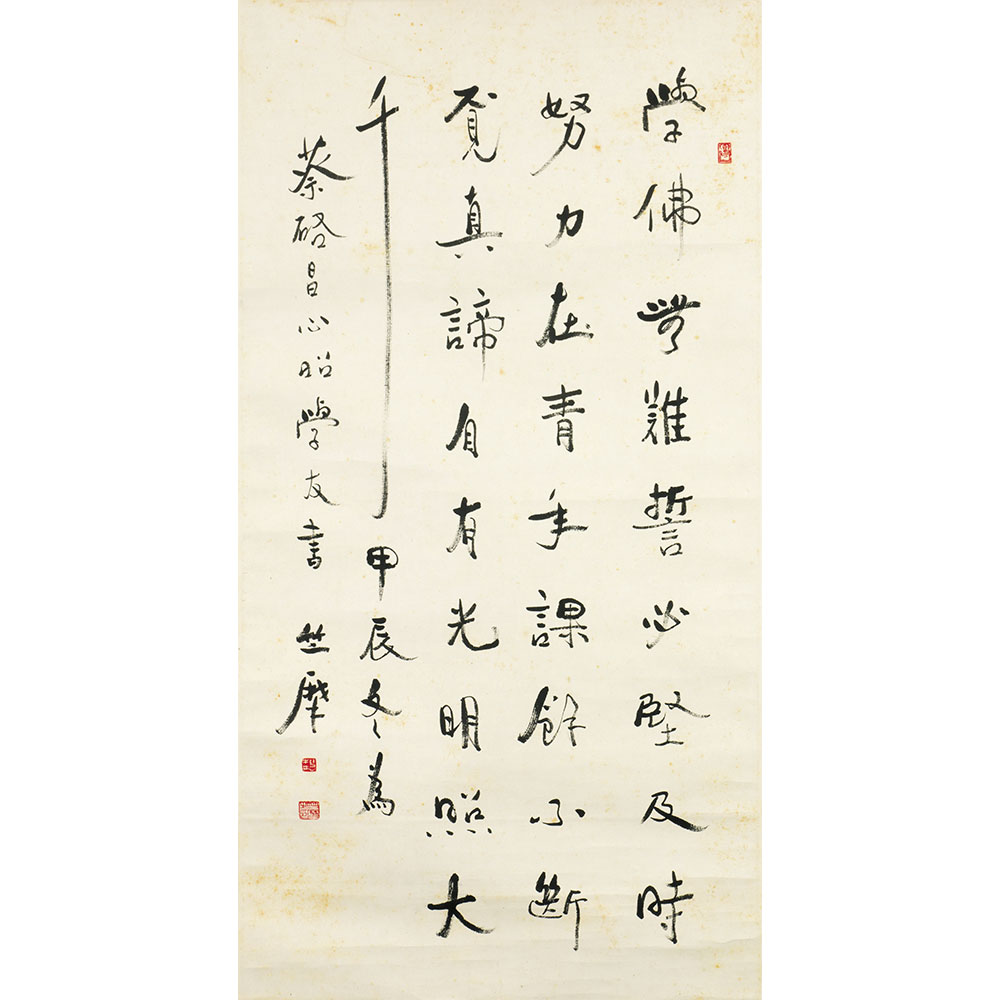 學佛無難誓必堅及時
努力在青年課餘不斷
覔真諦自有光明照大
千 甲辰冬為
蔡硌昌心昭學友書 竺摩